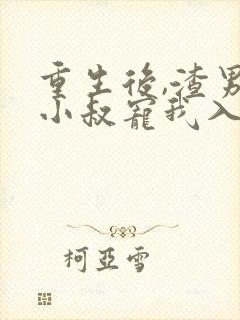 重生後,渣男
小叔寵我入
柯亞雪